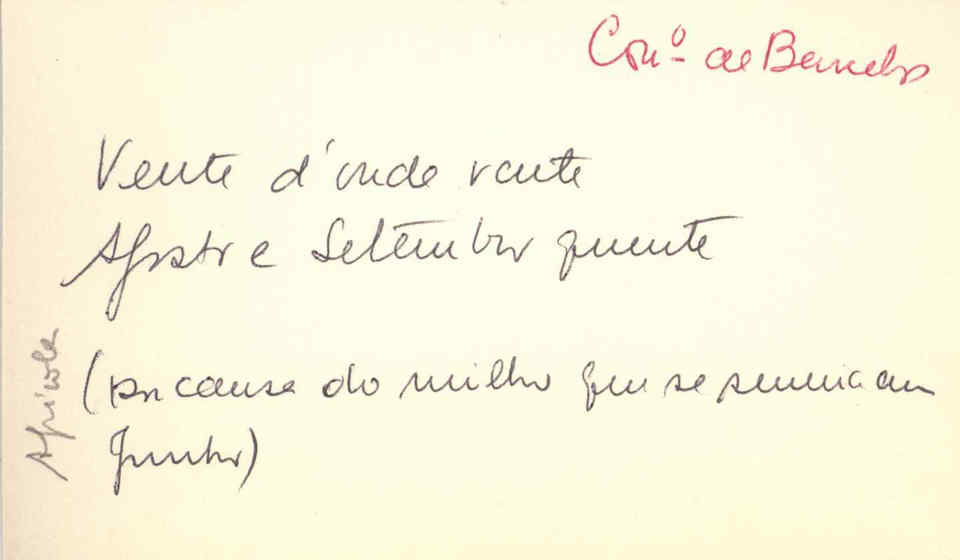 Con.º de Barcelos
Vente d'onde vente
Agosto e Setembro quente
(por causa do milho que se semeia em
Junho)
Agrícola